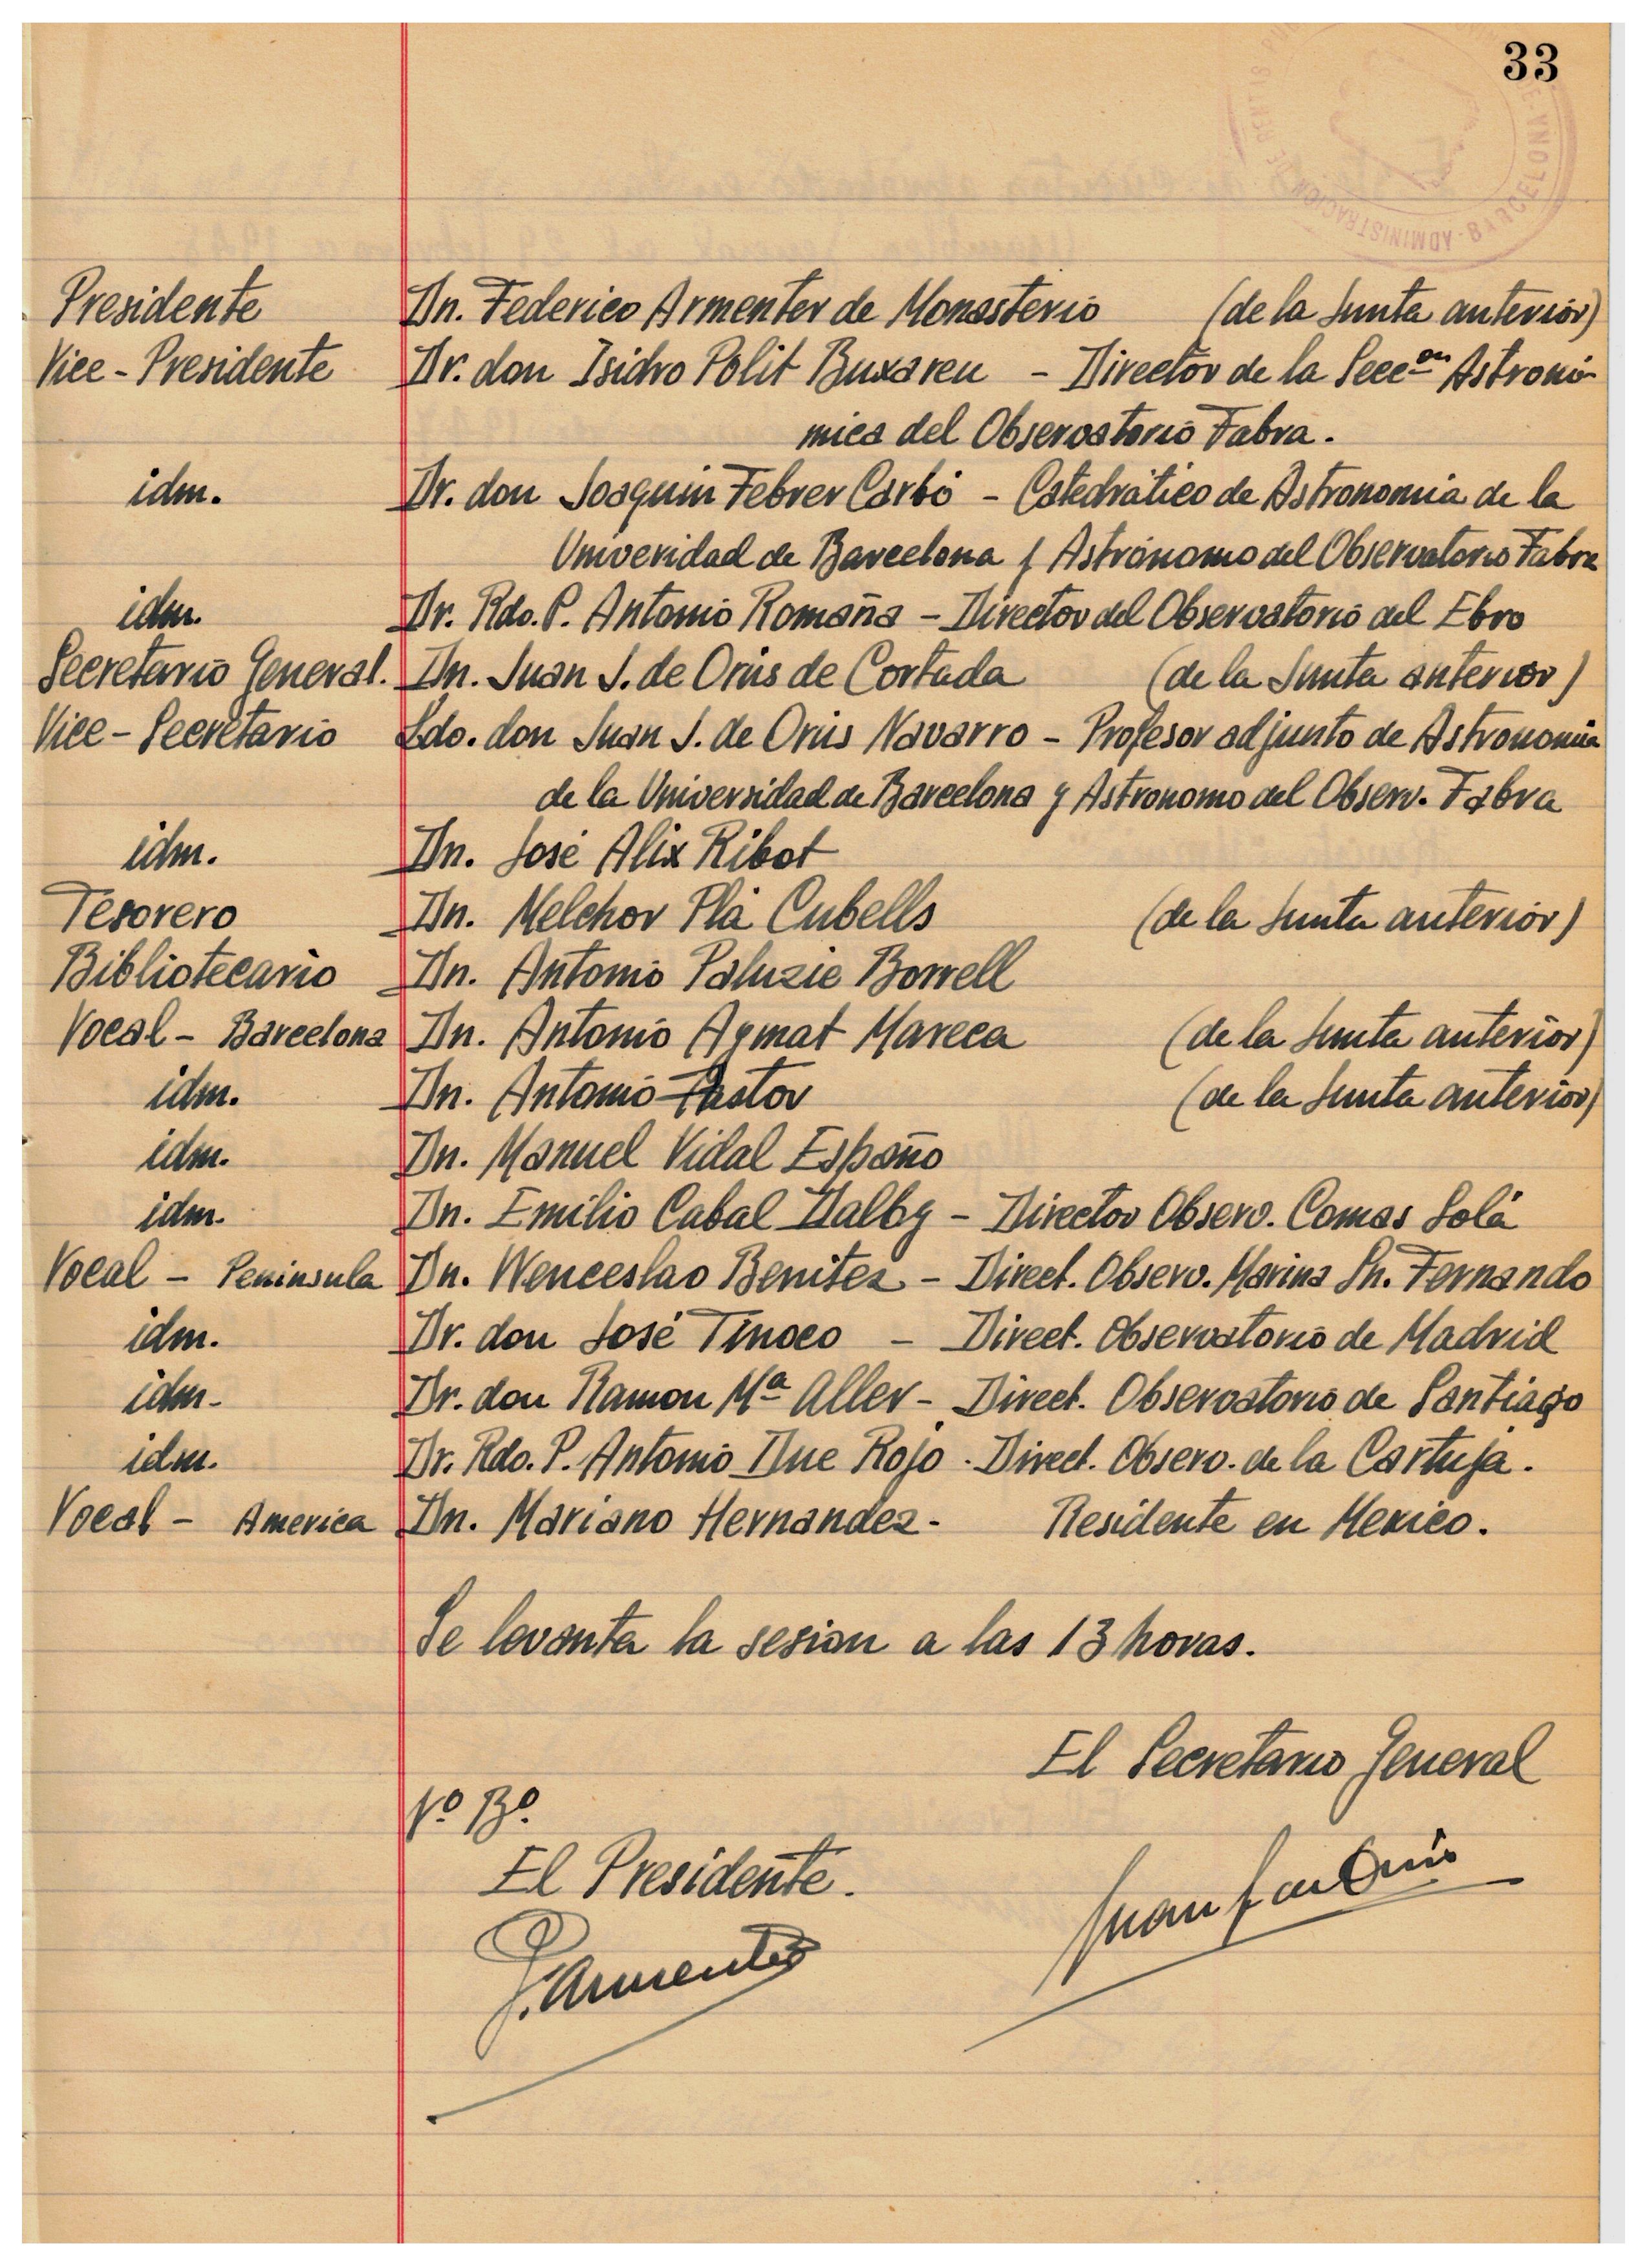 33
Presidente Dn. Federico Armenter de Monasterio (de la Junta anterior)
Vice-Presidente Dr. don Isidro Polit Buxareu - Director de la Secc.on Astronó-
mica del Observatorio Fabra.
idm. Dr. don Joaquin Febrer Carbó - Catedrático de Astronomia de la
Univeridad de Barcelona y Astrónomo del Observatorio Fabra
idm. Dr. Rdo. P. Antonio Romañá - Director del Observatorio del Ebro
Secretario General. Dn. Juan J. de Orús de Cortada (de la Junta anterior)
Vice-Secretario Ldo. don Juan J. de Orús Navarro - Profesor adjunto de Astronomia
de la Universidad de Barcelona y Astronomo del Observ. Fabra
idm. Dn. José Alix Ribot
Tesorero Dn. Melchor Plá Cubells (de la Junta anterior)
Bibliotecario Dn. Antonio Paluzie Borrell
Vocal - Barcelona Dn. Antonio Aymat Mareca (de la Junta anterior)
idm. Dn. Antonio Pastor (de la Junta anterior)
idm. Dn. Manuel Vidal Españo
idm. Dn. Emilio Cabal Dalby - Director Observ. Comas Solá
Vocal - Peninsula Dn. Wenceslao Benitez - Direct. Observ. Marina Sn. Fernando
idm. Dr. don José Tinoco - Direct. Observatorio de Madrid
idm. Dr. don Ramon Mª Aller - Direct. Observatorio de Santiago
idm. Dr. Rdo. P. Antonio Due Rojo - Direct. Observ. de la Cartuja.
Vocal - America Dn. Mariano Hernandez - Residente en Mexico.
Se levanta la sesion a las 13 horas.
El Secretario General
Vº Bº
El Presidente.
Juan J. de Orús
F. Armenter
ADMINISTRACION DE
BARCELONA